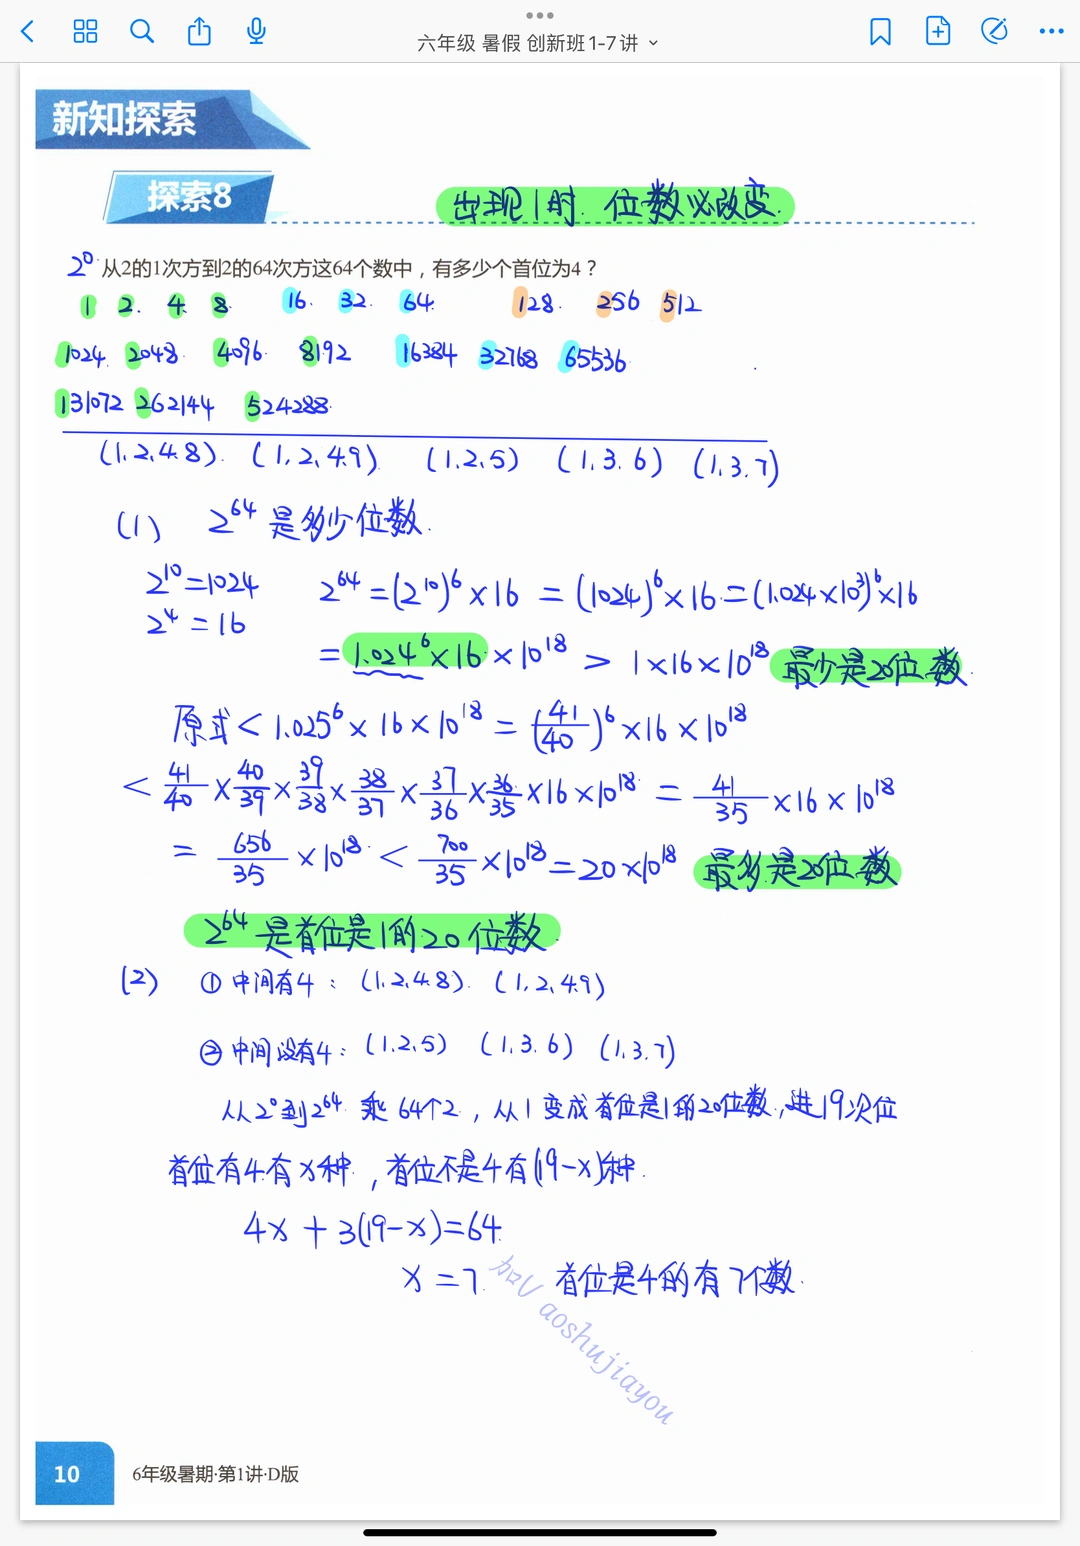 六年级 暑假 创新班1-7讲
新知探索
探索8
出现1时. 位数必改变.
2⁰ 从2的1次方到2的64次方这64个数中，有多少个首位为4？
1 2. 4. 8 16. 32. 64 128. 256 512
1024. 2048. 4096. 8192 16384 32768 65536
131072 262144 524288.
(1.2.4.8). (1.2.4.9) (1.2.5) (1.3.6) (1.3.7)
(1) 2⁶⁴ 是多少位数.
2¹⁰=1024 2⁶⁴=(2¹⁰)⁶×16 = (1024)⁶×16=(1.024×10³)⁶×16
2⁴=16
=1.024⁶×16×10¹⁸ > 1×16×10¹⁸ 最少是20位数.
原式<1.025⁶×16×10¹⁸=(41/40)⁶×16×10¹⁸
<41/40×40/39×39/38×38/37×37/36×36/35×16×10¹⁸ = 41/35×16×10¹⁸
= 656/35×10¹⁸<700/35×10¹⁸=20×10¹⁸ 最多是20位数
2⁶⁴是首位是1的20位数.
(2) ① 中间有4: (1.2.4.8). (1.2.4.9)
② 中间没有4: (1.2.5) (1.3.6) (1.3.7)
从2⁰到2⁶⁴ 乘64个2，从1变成首位是1的20位数，进19次位
首位有4有x种，首位不是4有(19-x)种.
4x+3(19-x)=64
x=7. 首位是4的有7个数.
加V aoshujiayou
10 6年级暑期·第1讲·D版